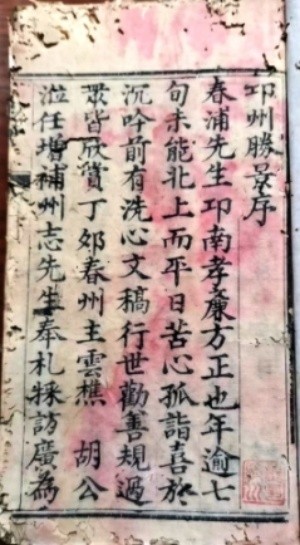 邛州勝景序
春浦先生邛南孝廉方正也年逾七
旬未能北上而平日苦心孤詣喜於
沉吟前有洗心文稿行世勸善規過
眾皆欣賞丁卯春州主雲樵 胡公
涖任增補州志先生奉札採訪廣為